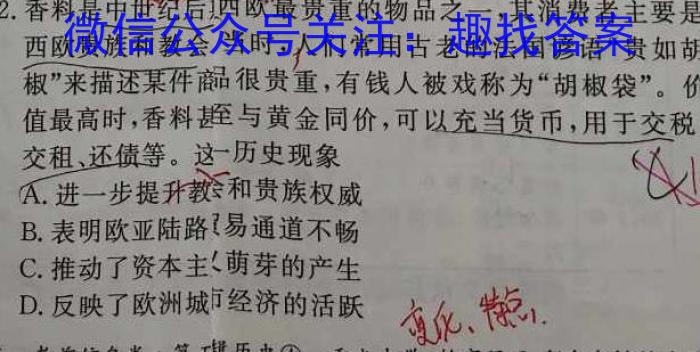 2.香料是中世纪后期西欧最贵重的物品之一,其消费者主要是
微信公众号关注：趣找答案
西欧贵族和教会 当时,人们常用古老的法国谚语“贵如胡
椒”来描述某件商品很贵重,有钱人被戏称为“胡椒袋”。价
值最高时,香料甚至与黄金同价,可以充当货币,用于交税
交租、还债等。这一历史现象
A.进一步提升教会和贵族权威
B.表明欧亚陆路贸易通道不畅
C.推动了资本主义萌芽的产生
D.反映了欧洲城市经济的活跃
变化、特点.